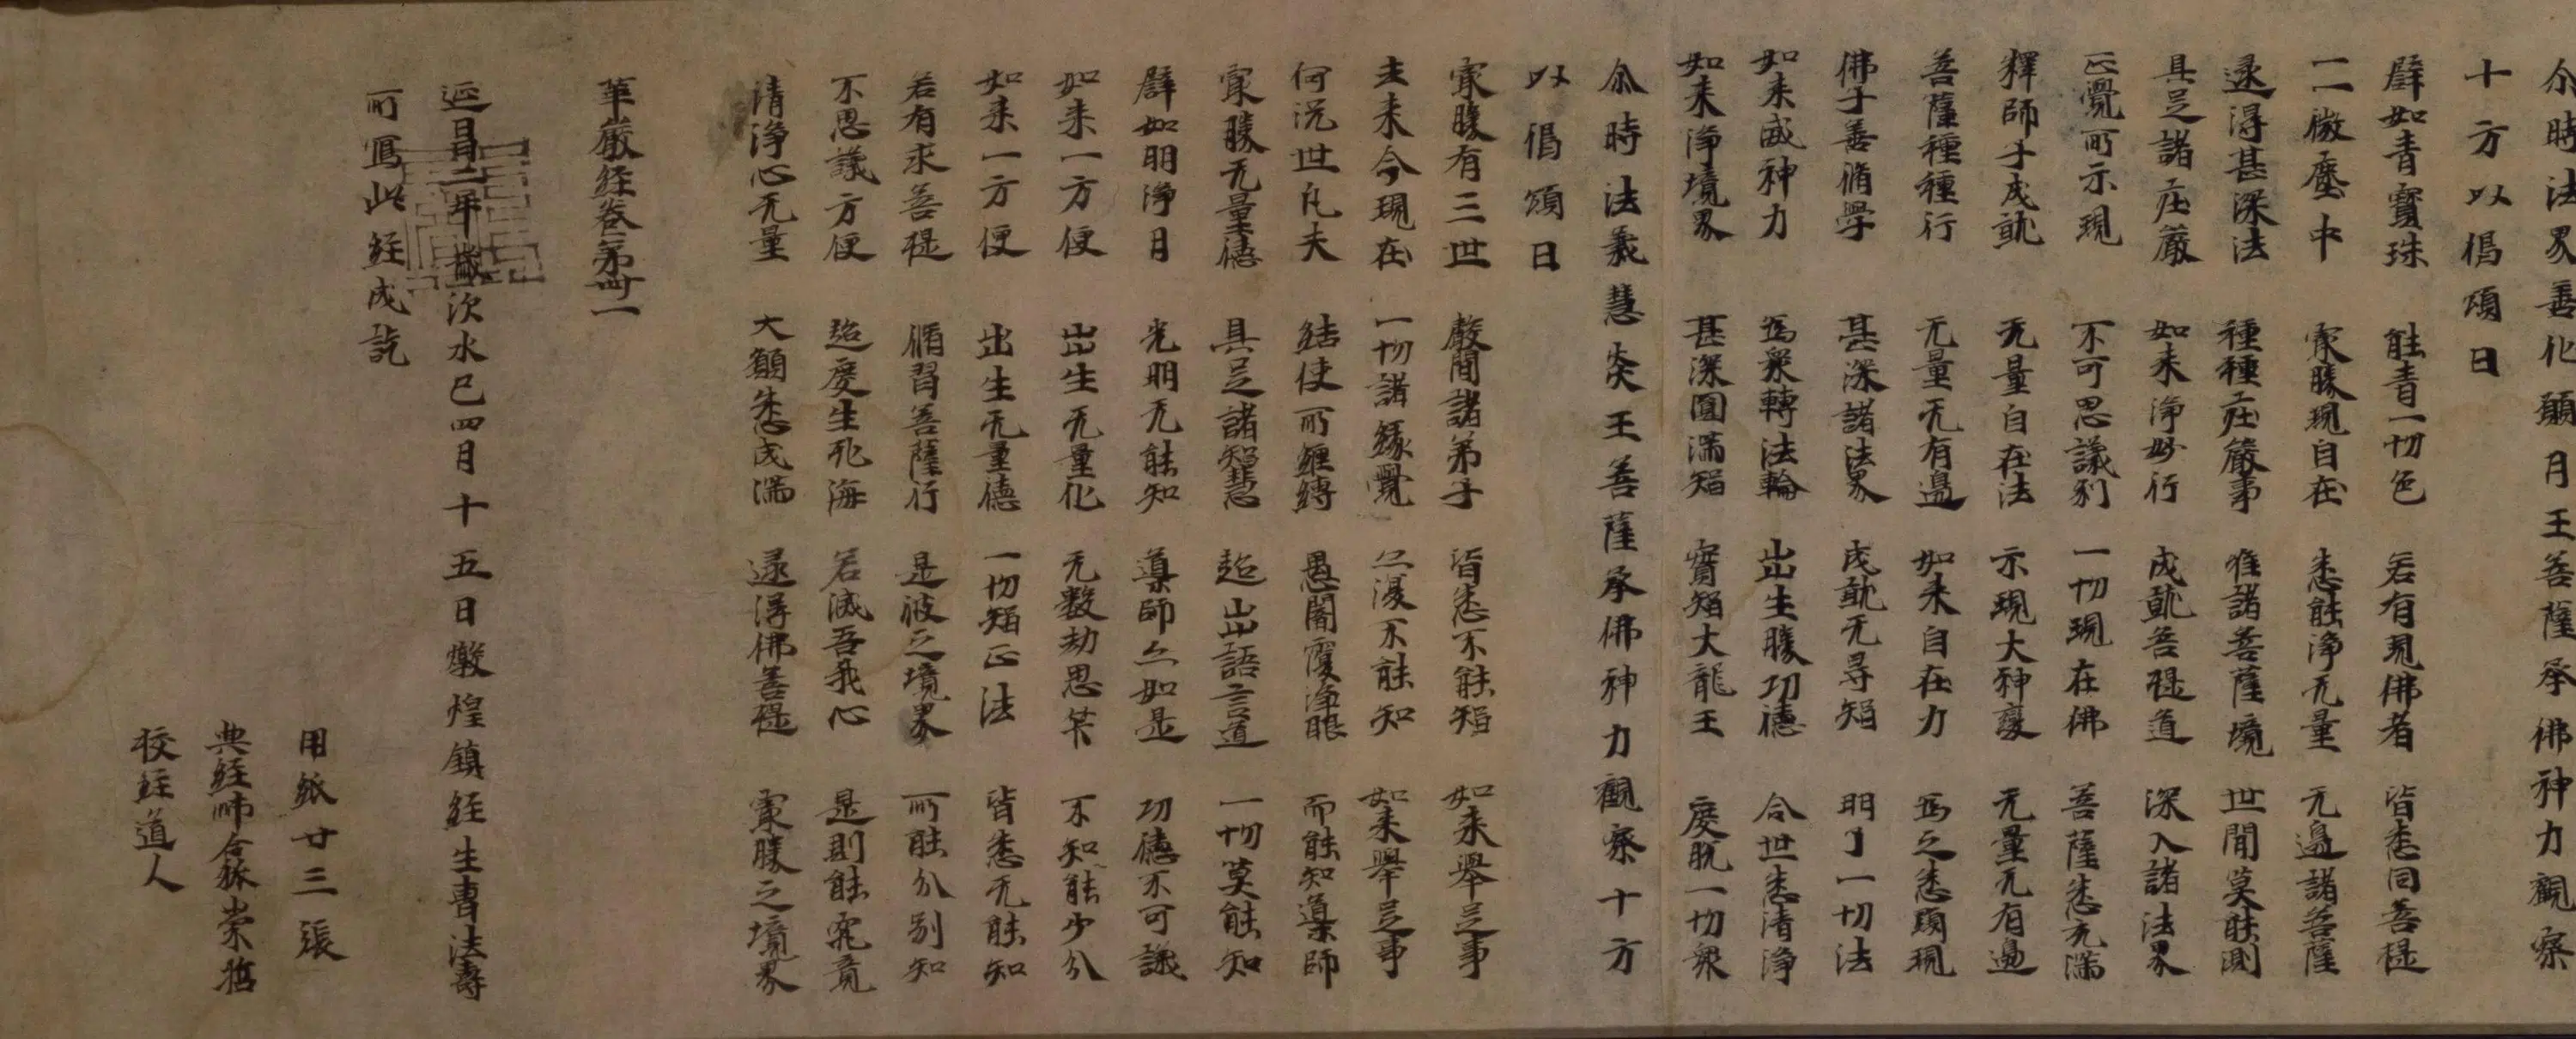 尒時法界善化願月王菩薩承佛神力觀察
十方以偈頌曰
辟如青寶珠 能青一切色 若有見佛者 皆悉同菩提
一一微塵中 寂勝現自在 悉能淨无量 无邊諸菩薩
逮得甚深法 種種庄嚴事 唯諸菩薩境 世間莫能測
具足諸庄嚴 如来淨妙行 成就菩提道 深入諸法界
正覺所示現 不可思議刹 一切現在佛 菩薩悉充滿
釋師子成就 无量自在法 示現大神變 无量无有邊
菩薩種種行 无量无有邊 如来自在力 為之悉顕現
佛子善脩學 甚深諸法界 成就无㝵智 明了一切法
如来威神力 為衆轉法輪 出生勝功德 令世悉清淨
如来淨境界 甚深圓滿智 實智大龍王 度脱一切衆
尒時法義慧炎王菩薩承佛神力觀察十方
以偈頌曰
寂勝有三世 聲聞諸弟子 皆悉不能知 如来舉足事
去来今現在 一切諸縁覺 亦復不能知 如来舉足事
何況世凡夫 結使所纏縛 愚闇覆淨眼 而能知導師
寂勝无量德 具足諸智慧 超出語言道 一切莫能知
辟如明淨月 光明无能知 導師亦如是 功德不可議
如来一方便 出生无量化 无數劫思筭 不知能少分
如来一方便 出生无量德 一切智正法 皆悉无能知
若有求菩提 脩習菩薩行 是彼之境界 所能分别知
不思議方便 超度生死海 若滅吾我心 是則能究竟
清淨心无量 大願悉成滿 逮得佛菩提 寂勝之境界
華嚴経卷第卌一
延昌二年歳次水巳四月十五日燉煌鎮経生曹法壽
所寫此経成訖
用紙廿三張
典経帥令狐崇哲
校経道人